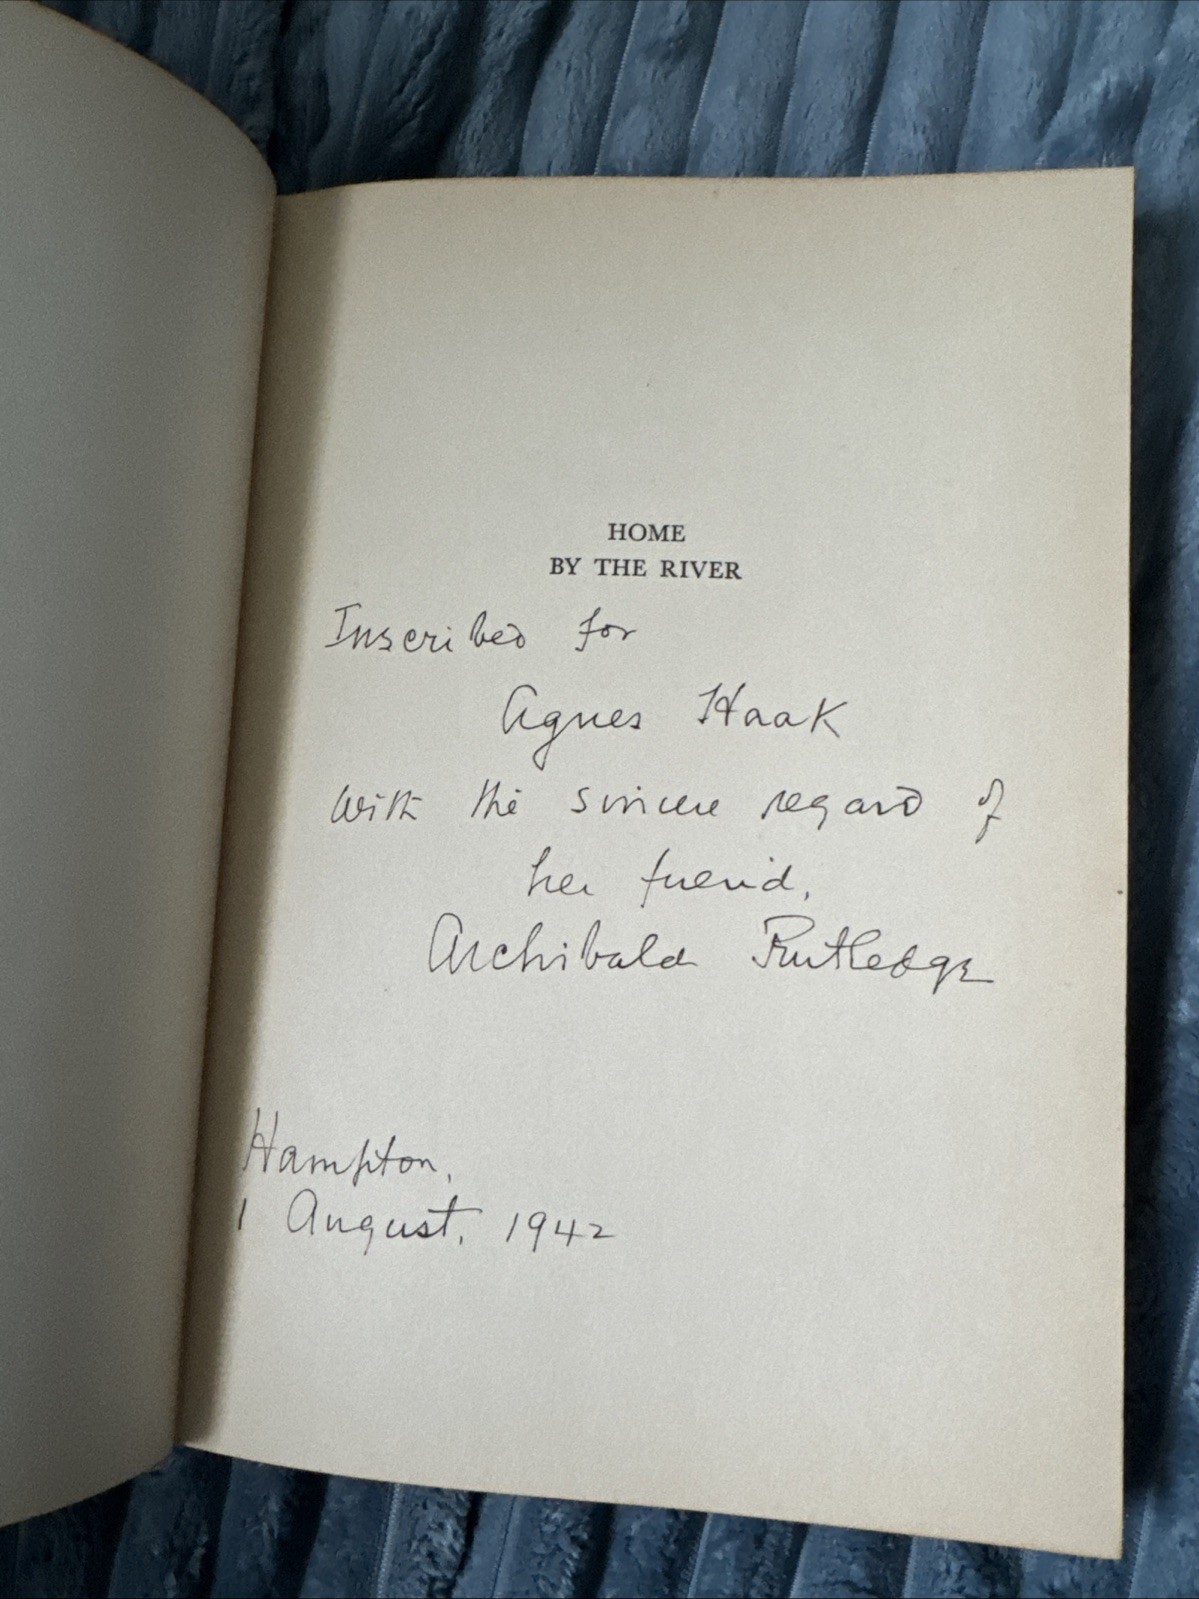 HOME
BY THE RIVER
Inscribed for
Agnes Haak
with the sincere regard of
her friend,
Archibald Rutledge
Hampton,
1 August, 1942